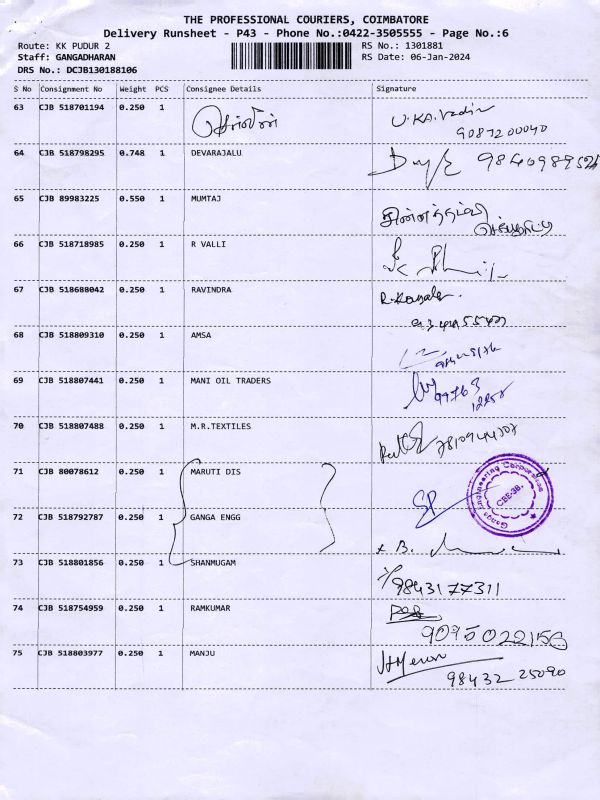 THE PROFESSIONAL COURIERS, COIMBATORE
Delivery Runsheet - P43 - Phone No.:0422-3505555 - Page No.:6
Route: KK PUDUR 2 RS No.: 1301881
Staff: GANGADHARAN RS Date: 06-Jan-2024
DRS No.: DCJB130188106
S No Consignment No Weight PCS Consignee Details Signature
63 CJB 518701194 0.250 1
9087200040
64 CJB 518798295 0.748 1 DEVARAJALU
65 CJB 89983225 0.550 1 MUMTAJ
66 CJB 518718985 0.250 1 R VALLI
67 CJB 518688042 0.250 1 RAVINDRA
68 CJB 518809310 0.250 1 AMSA
69 CJB 518807441 0.250 1 MANI OIL TRADERS
99763
70 CJB 518807488 0.250 1 M.R.TEXTILES
71 CJB 80078612 0.250 1 MARUTI DIS
Ganga Engineering Corporation
CBE-38.
72 CJB 518792787 0.250 1 GANGA ENGG
73 CJB 518801856 0.250 1 SHANMUGAM
9843177311
74 CJB 518754959 0.250 1 RAMKUMAR
9095022156
75 CJB 518803977 0.250 1 MANJU
98432 25090